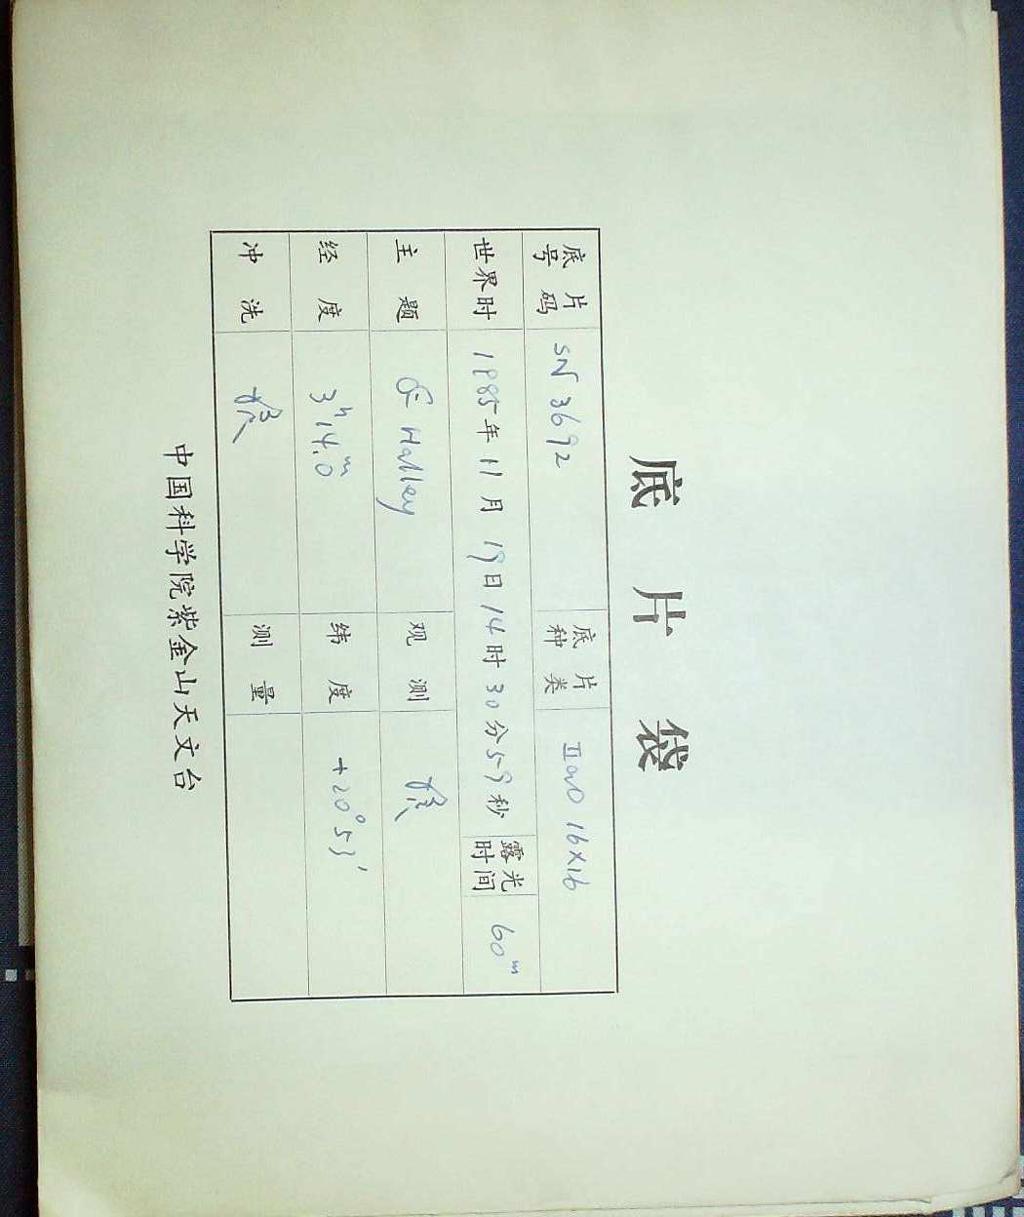 底片袋
底片号码 SN 3692 底片种类 IIaO 16×16
世界时 1985年11月19日14时30分59秒 露光时间 60m
主题 Halley 观测
经度 3h14.0m 纬度 +20°53′
冲洗 测量
中国科学院紫金山天文台